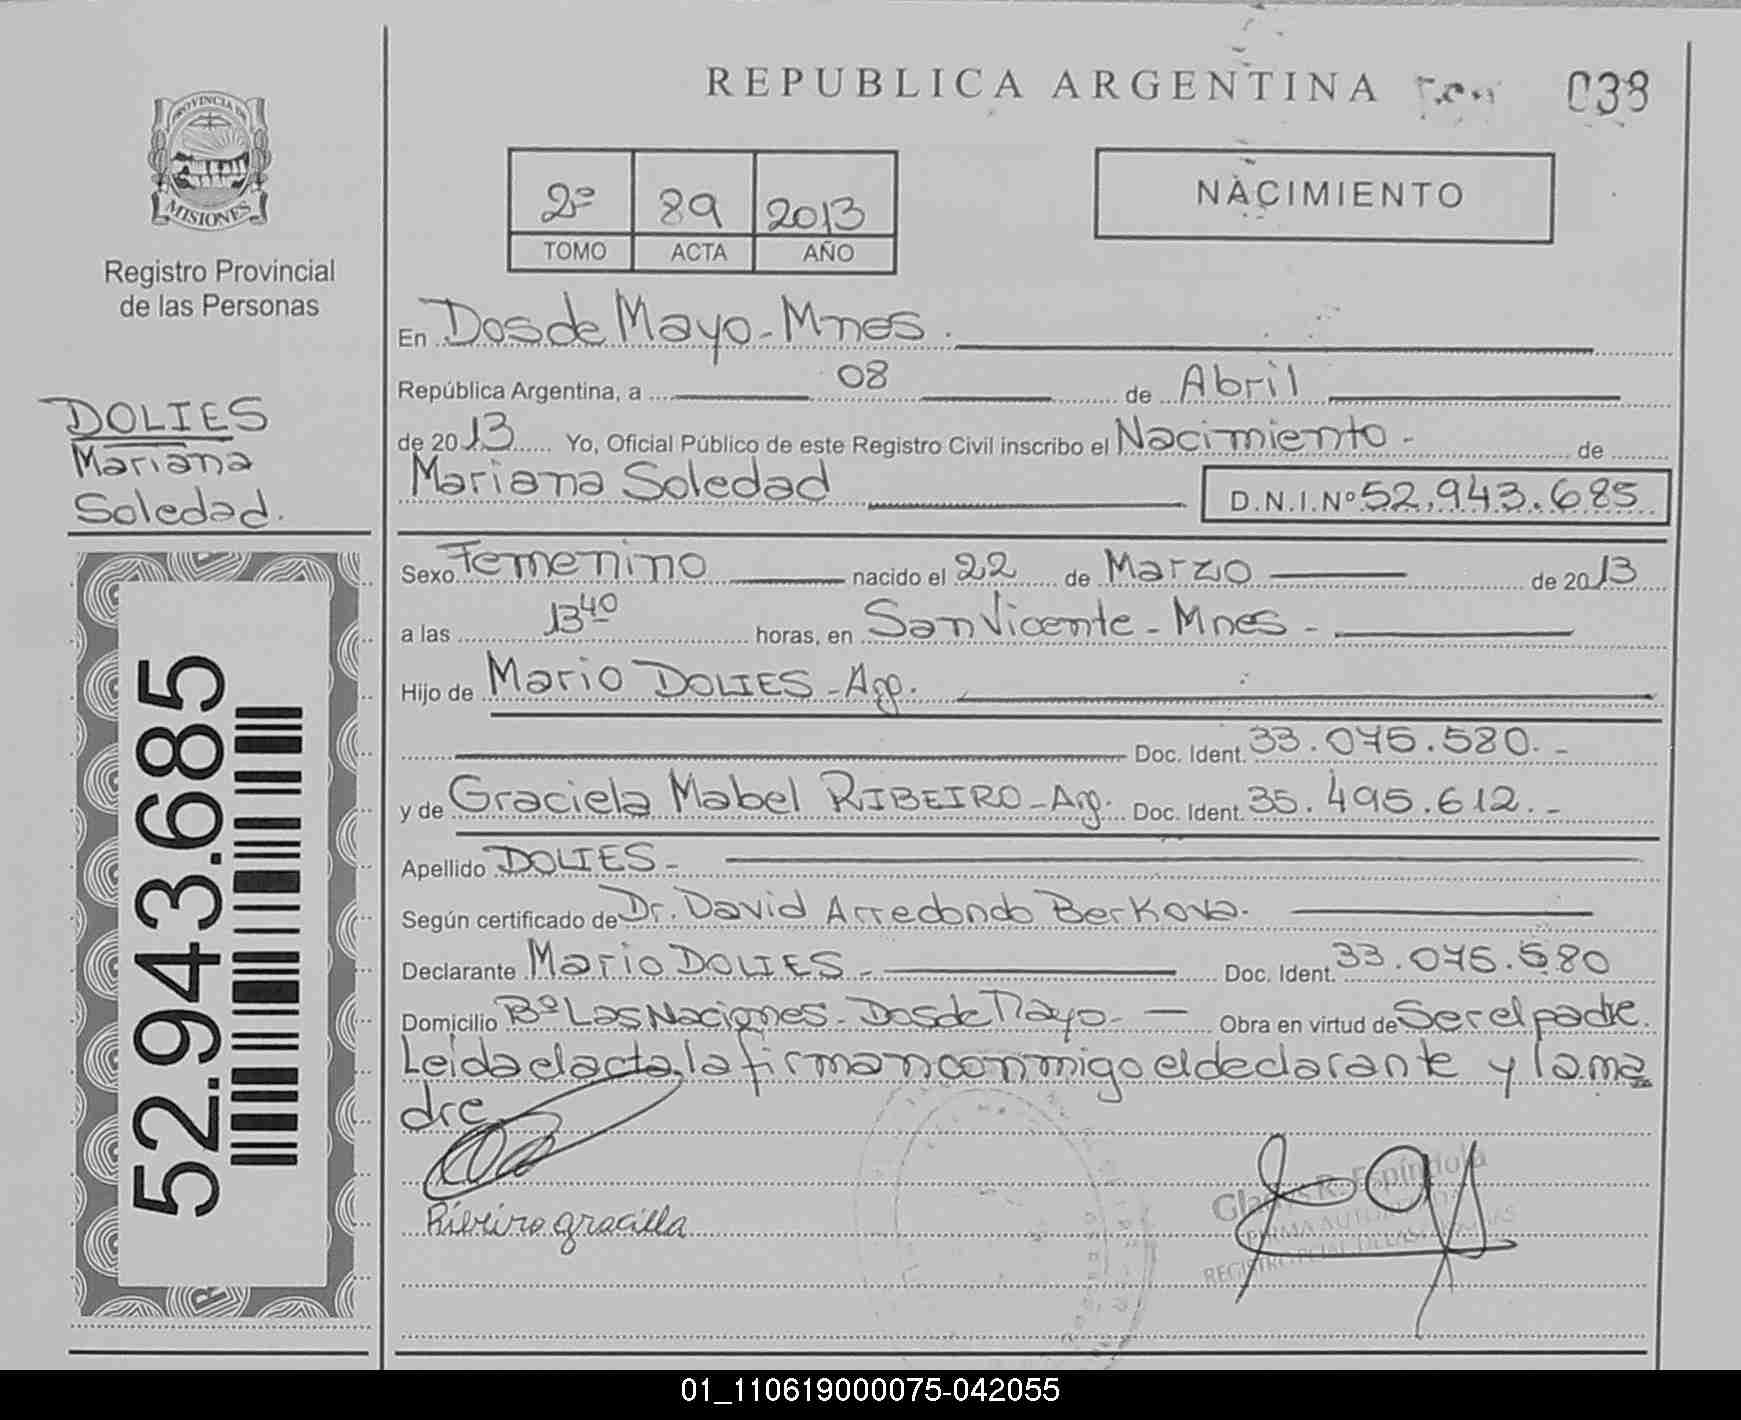 REPUBLICA ARGENTINA
038
PROVINCIA DE
MISIONES
Registro Provincial
de las Personas
2º 89 2013
TOMO ACTA AÑO
NACIMIENTO
En Dos de Mayo - Mnes.
República Argentina, a 08 de Abril
de 2013 Yo, Oficial Público de este Registro Civil inscribo el Nacimiento - de
Mariana Soledad D.N.I.Nº 52.943.685
DOLIES
Mariana
Soledad.
52.943.685
Sexo Femenino nacido el 22 de Marzo de 2013
a las 13 40 horas, en San Vicente - Mnes -
Hijo de Mario DOLIES - Arg.
Doc. Ident. 33.075.580.-
y de Graciela Mabel RIBEIRO - Arg. Doc. Ident. 35.495.612.-
Apellido DOLIES -
Según certificado de Dr. David Arredondo Berkova.
Declarante Mario DOLIES - Doc. Ident. 33.075.580
Domicilio Bº Las Naciones - Dos de Mayo - Obra en virtud de Ser el padre.
Leida el acta, la firman conmigo el declarante y la ma
dre
Ribeiro gracilla
R. Espíndola
01_110619000075-042055